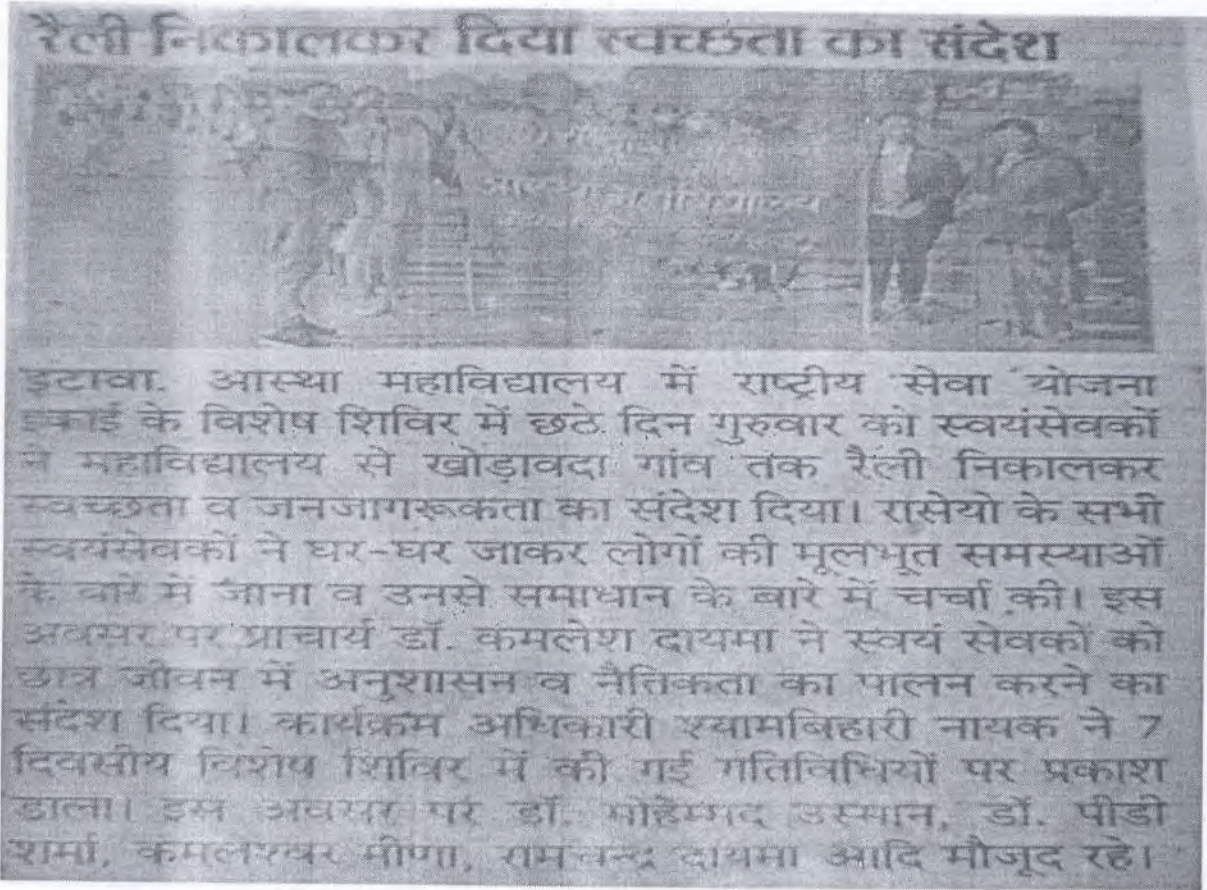 रैली निकालकर दिया स्वच्छता का संदेश
आस्था महाविद्यालय
इटावा. आस्था महाविद्यालय में राष्ट्रीय सेवा योजना
इकाई के विशेष शिविर में छठे दिन गुरुवार को स्वयंसेवकों
ने महाविद्यालय से खोड़ावदा गांव तक रैली निकालकर
स्वच्छता व जनजागरूकता का संदेश दिया। रासेयो के सभी
स्वयंसेवकों ने घर-घर जाकर लोगों की मूलभूत समस्याओं
के बारे में जाना व उनसे समाधान के बारे में चर्चा की। इस
अवसर पर प्राचार्य डॉ. कमलेश दायमा ने स्वयं सेवकों को
छात्र जीवन में अनुशासन व नैतिकता का पालन करने का
संदेश दिया। कार्यक्रम अधिकारी श्यामबिहारी नायक ने 7
दिवसीय विशेष शिविर में की गई गतिविधियों पर प्रकाश
डाला। इस अवसर पर डॉ. मोहम्मद उस्मान, डॉ. पीडी
शर्मा, कमलेश्वर मीणा, रामचन्द्र दायमा आदि मौजूद रहे।